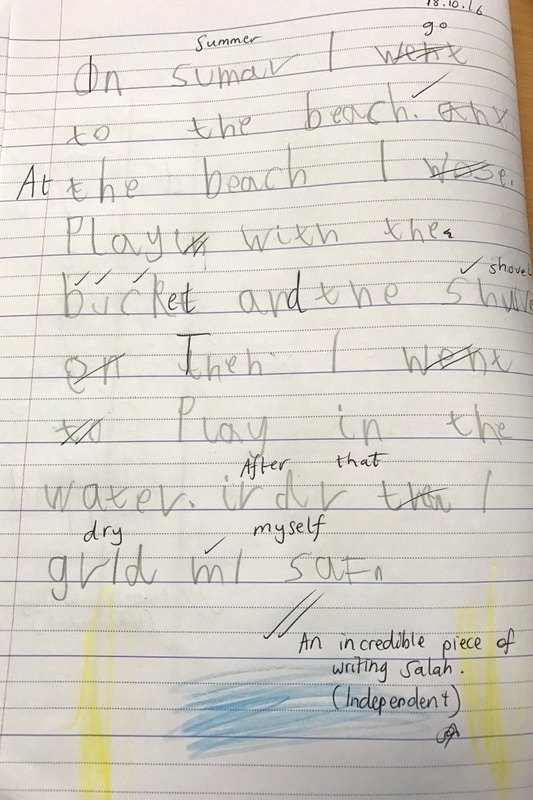 18.10.16
Summer go
On sumar I went
to the beach. anx
At the beach I wose.
Playin with the
shovel
bucket and the shuve
en Then I went
to Play in the
After that
water. irdr then I
dry myself
grId mI satn
An incredible piece of
writing Salah.
(Independent)